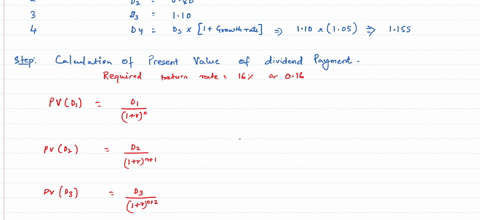 2 D2 = 0.80
3 D3 = 1.10
4 D4 = D3 x [1 + Growth rate] => 1.10 x (1.05) => 1.155
Step: Calculation of Present Value of dividend Payment.
Required return rate = 16% or 0.16
PV (D1) = D1 / (1+r)^n
PV (D2) = D2 / (1+r)^n+1
PV (D3) = D3 / (1+r)^n+2